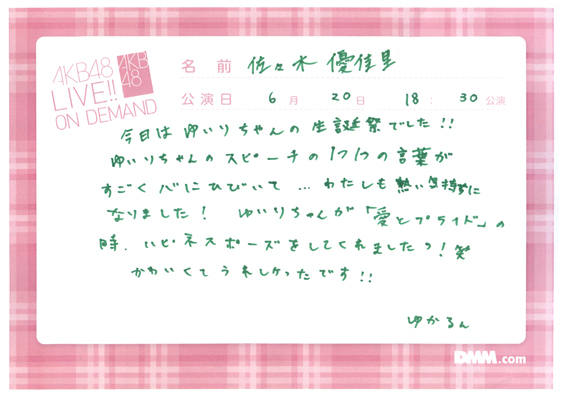 AKB48
LIVE!!
ON DEMAND
AKB
48
名前 佐々木 優佳里
公演日 6月 20日 18:30公演
今日は ゆいりちゃんの 生誕祭でした!!
ゆいりちゃんの スピーチの 1つ1つの 言葉が
すごく 心にひびいて … わたしも 熱い気持ちに
なりました! ゆいりちゃんが 「愛とプライド」の
時、ハピネスポーズをしてくれましたっ!笑
かわいくて うれしかったです!!
ゆかるん
DMM.com